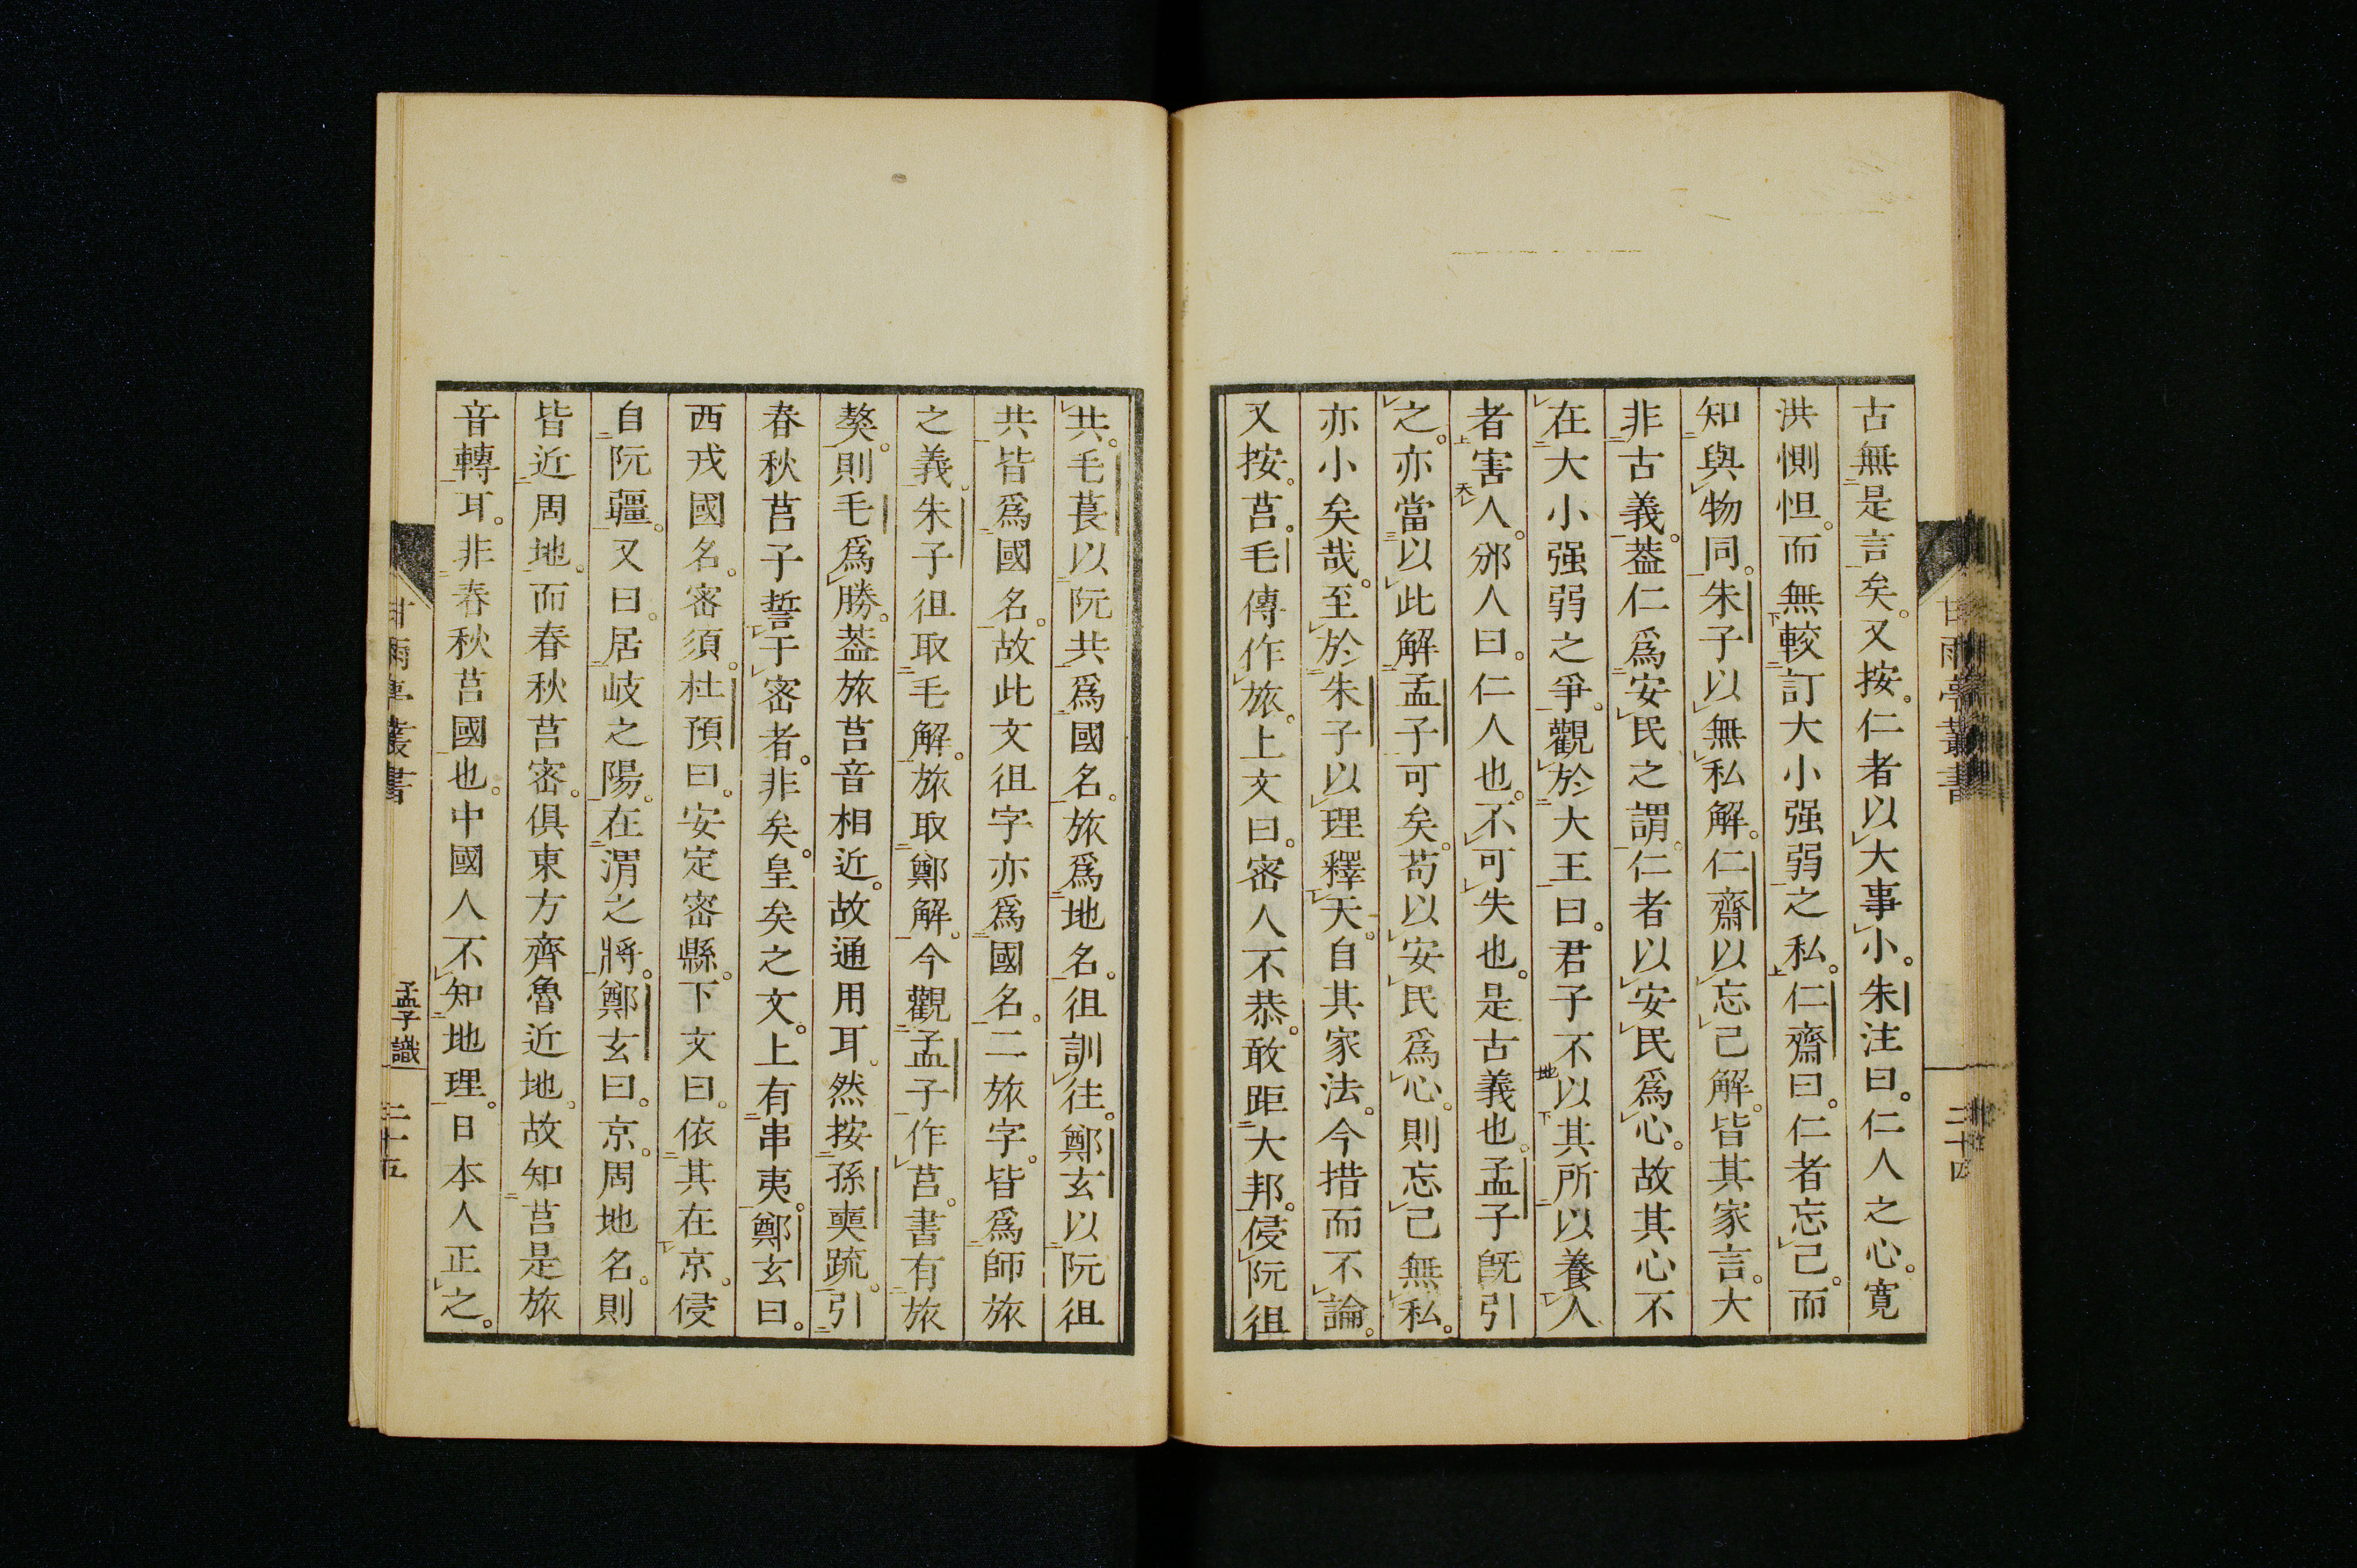 古無是言矣。又按。仁者以大事小。朱注曰。仁人之心。寬
洪惻怛。而無較訂大小强弱之私。仁齋曰。仁者忘己。而
知與物同。朱子以無私解。仁齋以忘己解。皆其家言。大
非古義。葢仁爲安民之謂。仁者以安民爲心。故其心不
在大小强弱之爭。觀於大王曰。君子不以其所以養人
者害人。邠人曰。仁人也。不可失也。是古義也。孟子旣引
之。亦當以此解孟子可矣。苟以安民爲心。則忘己無私。
亦小矣哉。至於朱子以理釋天。自其家法。今措而不論。
又按。莒。毛傳作旅。上文曰。密人不恭。敢距大邦。侵阮徂
共。毛萇以阮共爲國名。旅爲地名。徂訓往。鄭玄以阮徂
共皆爲國名。故此文徂字亦爲國名。二旅字。皆爲師旅
之義。朱子徂取毛解。旅取鄭解。今觀孟子作莒。書有旅
獒。則毛爲勝。葢旅莒音相近。故通用耳。然按孫奭疏。引
春秋莒子誓于密者。非矣。皇矣之文。上有串夷。鄭玄曰。
西戎國名。密須。杜預曰。安定密縣。下文曰。依其在京。侵
自阮疆。又曰。居岐之陽。在渭之將。鄭玄曰。京。周地名。則
皆近周地。而春秋莒密。俱東方齊魯近地。故知莒是旅
音轉耳。非春秋莒國也。中國人不知地理。日本人正之。
甘雨亭叢書
孟子識
二十五
甘雨亭叢書
二十四